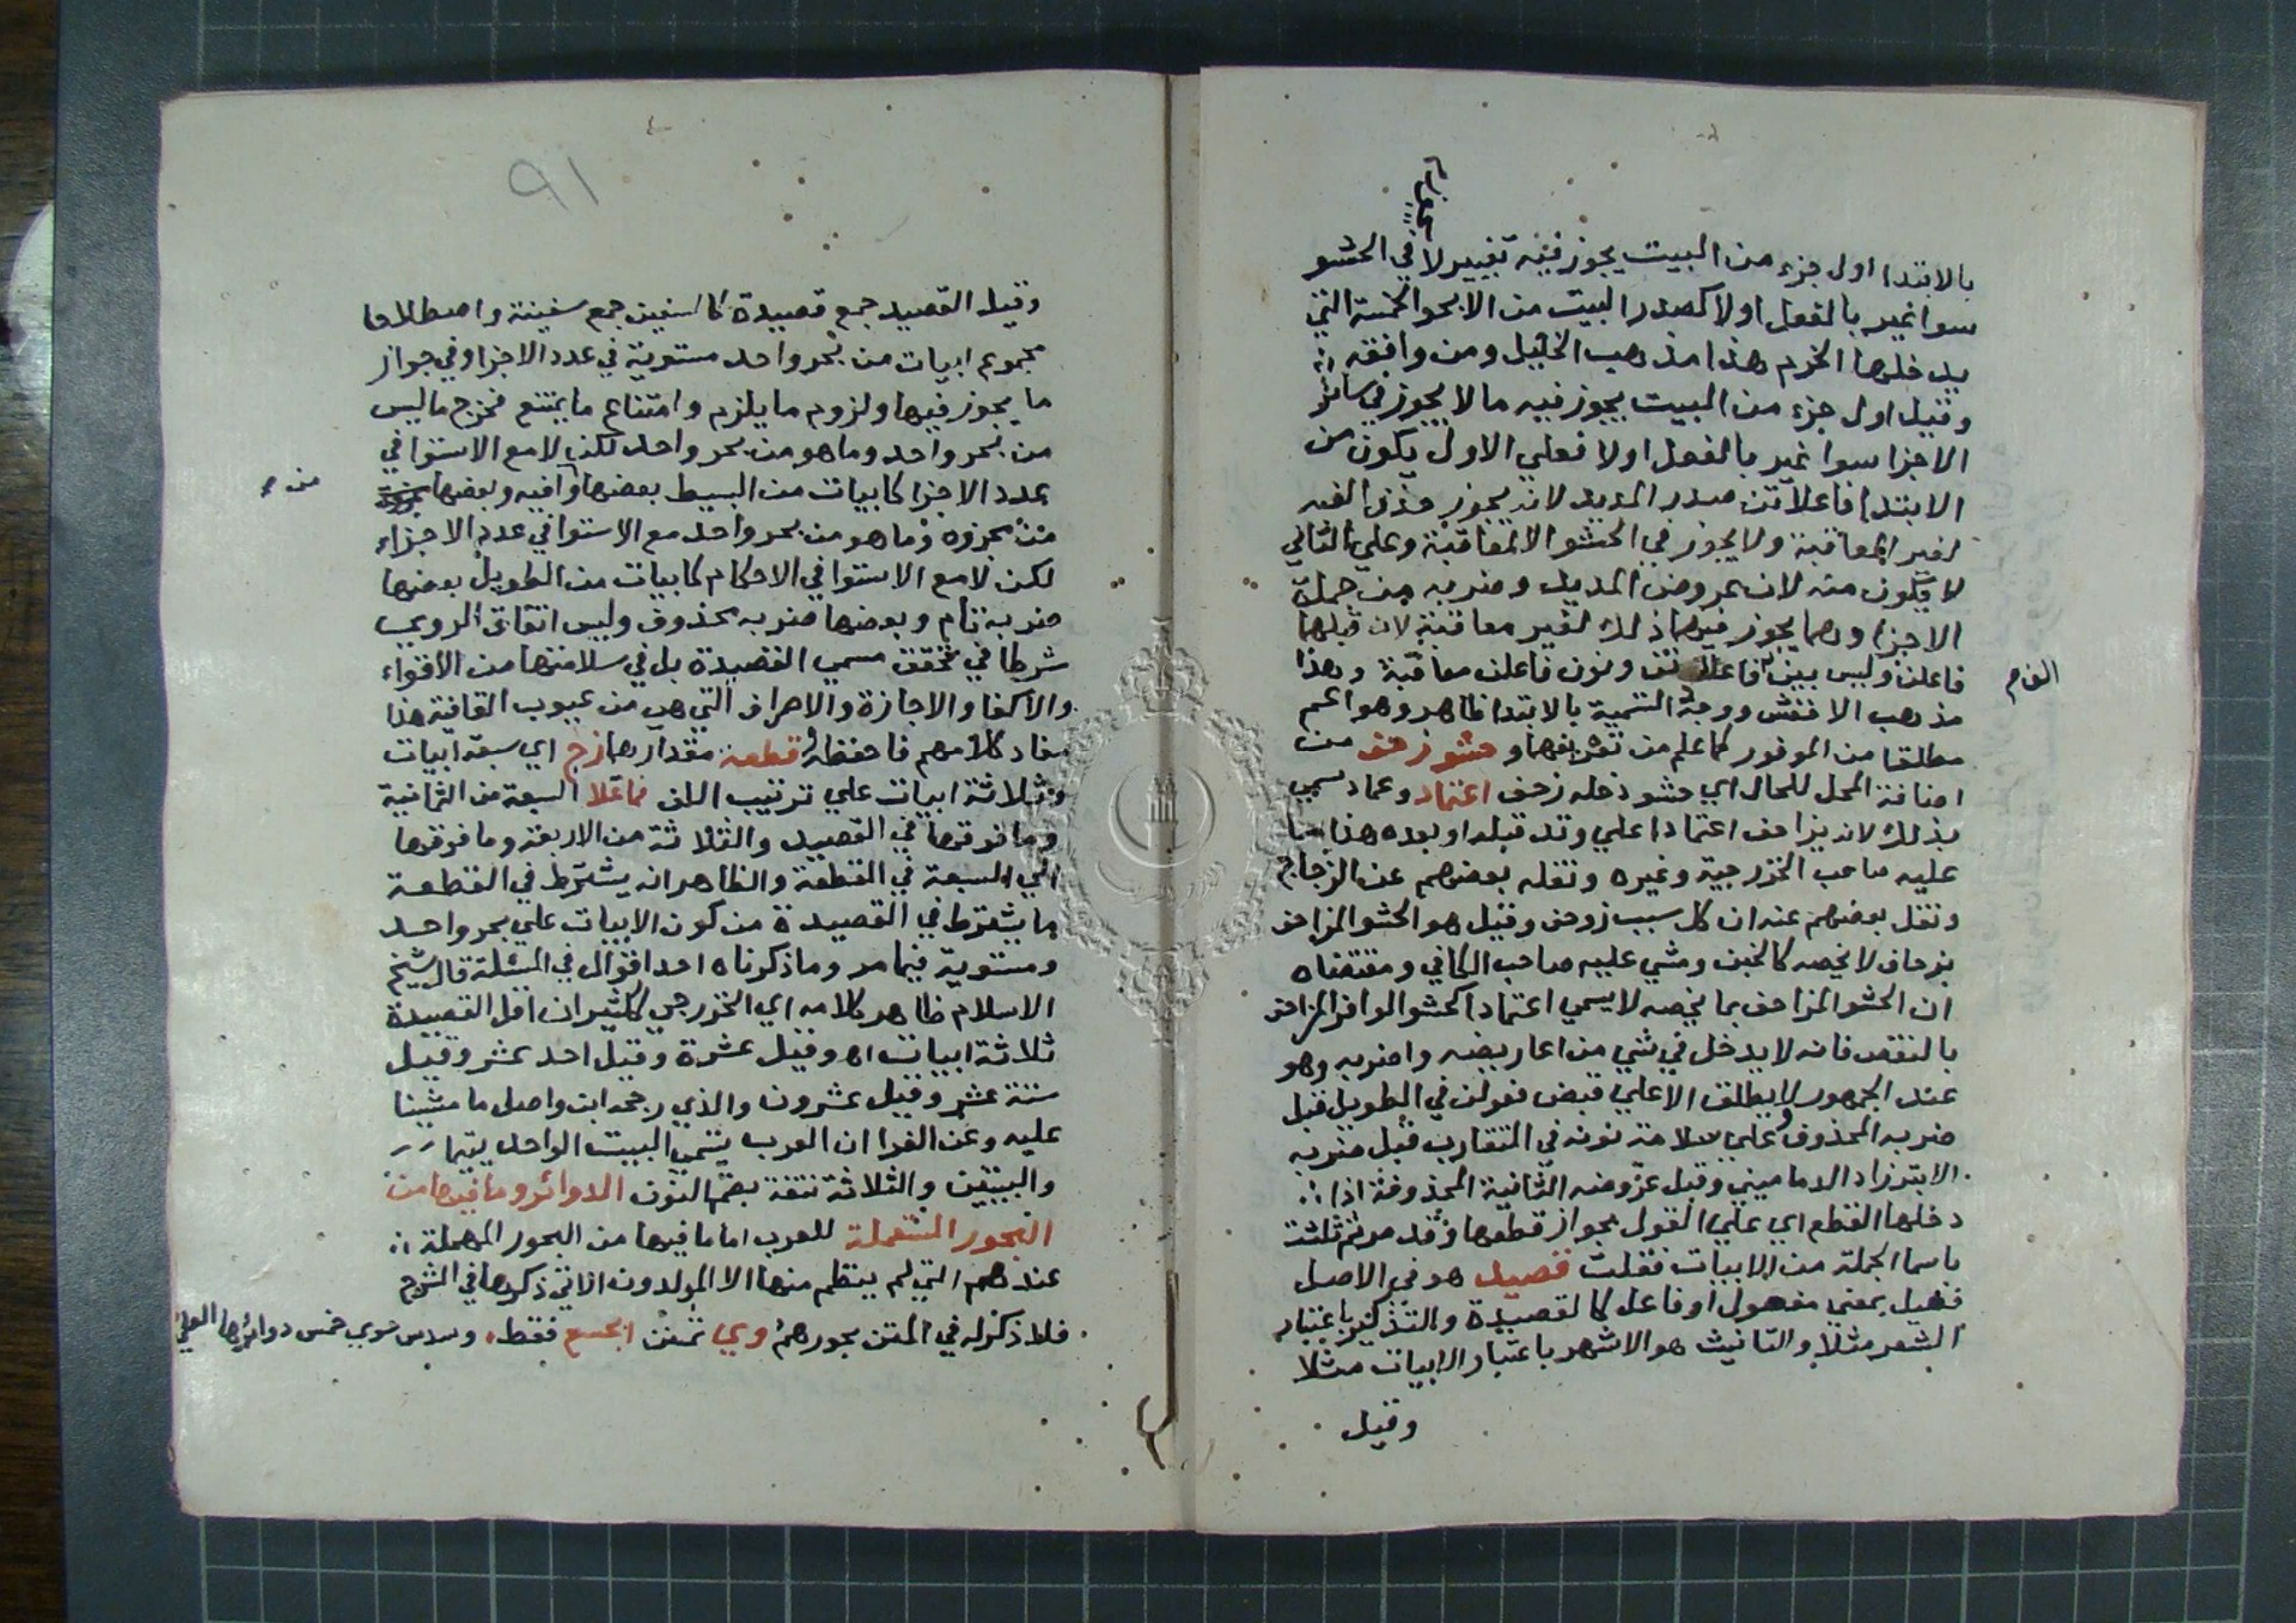 بالابتدا اول جزء من البيت يجوز فيه تغيير لا في الحشو
سوا غير بالفعل اولا كصدر البيت من الابحر الخمسة التي
يدخلها الخرم هذا مذهب الخليل ومن وافقه
وقيل اول جزء من البيت يجوز فيه مالا يجوز في سائر
الاجزا سوا غير بالفعل اولا فعلي الاول يكون من
الابتدا فاعلاتن صدر المديد لانه يجوز حذف الفه
لغير المعاقبة ولا يجوز في الحشو الا لمعاقبة وعلي الثاني
لا يكون منه لان عروض المديد وضربه من جملة
الاجزا وهما يجوز فيهما ذلك لغير معاقبة لان قبلهما
فاعلن وليس بين فاعلاتن ونون فاعلن معاقبة وهذا
الف م
مذهب الاخفش ووجه التسمية بالابتدا ظاهر وهو اعم
مطلقا من الموفور كما علم من تعريفهما وحشو زحف من
اضافة المحل للحال اي حشو دخله زحف اعتماد وعماد سمي
بذلك لانه يزاحف اعتمادا علي وتد قبله او بعده هذا ما
عليه صاحب الخزرجية وغيره ونقله بعضهم عن الزجاج
ونقل بعضهم عنه ان كل سبب زوحف وقيل هو الحشو المزاحف
بزحاف لا يخصه كالخبن ومشي عليه صاحب الكافي ومقتضاه
ان الحشو المزاحف بما يخصه لا يسمي اعتمادا كحشو الوافر المزاحف
بالنقص فانه لا يدخل في شي من اعاريضه واضربه وهو
عند الجمهور لا يطلق الا علي قبض فعولن في الطويل قبل
ضربه المحذوف وعلي سلامة نونه في المتقارب قبل ضربه
الابتر زاد الدماميني وقبل عروضه الثانية المحذوفة اذا
دخلها القطع اي علي القول بجواز قطعها وقد صرتم ثلثت
باسما الجملة من الابيات فقلت قصيد هو في الاصل
فعيل بمعني مفعول او فاعل كالقصيدة والتذكير باعتبار
الشعر مثلا والتانيث هو الاشهر باعتبار الابيات مثلا
وقيل
٩١
وقيل القصيد جمع قصيدة كالسفين جمع سفينة واصطلاحا
مجموع ابيات من بحر واحد مستوية في عدد الاجزا وفي جواز
ما يجوز فيها ولزوم ما يلزم وامتناع ما يمتنع فخرج ما ليس
من بحر واحد وما هو من بحر واحد لكن لا مع الاستوا في
عدد الاجزا كابيات من البسيط بعضها وافيه وبعضها
من م
من مجزوه وما هو من بحر واحد مع الاستوا في عدد الاجزاء
لكن لا مع الاستوا في الاحكام كابيات من الطويل بعضها
ضربه تام وبعضها ضربه محذوف وليس اتفاق الروي
شرطا في تحقق مسمي القصيدة بل في سلامتها من الاقواء
والاكفا والاجازة والاصراف التي هي من عيوب القافية هذا
مفاد كلامهم فاحفظه قطعة مقدارهما زج اي سبعة ابيات
وثلاثة ابيات علي ترتيب اللف فما علا السبعة من الثمانية
وما فوقها في القصيد والثلاثة من الاربعة وما فوقها
الي السبعة في القطعة والظاهر انه يشترط في القطعة
ما يشترط في القصيدة من كون الابيات علي بحر واحد
ومستوية فيما مر وما ذكرناه احد اقوال في المسئلة قال شيخ
الاسلام ظاهر كلامه اي الخزرجي لكثير ان اقل القصيدة
ثلاثة ابيات اه وقيل عشرة وقيل احد عشر وقيل
ستة عشر وقيل عشرون والذي رجحه ابن واصل ما مشينا
عليه وعن الفرا ان العرب تسمي البيت الواحد يتيما
والبيتين والثلاثة نتفة بضم النون الدوائر وما فيها من
البحور المستعملة للعرب اما ما فيها من البحور المهملة
عندهم التي لم ينظم منها الا المولدون الاتي ذكرها في الشرح
فلا ذكر له في المتن بحورهم وي ثمنن ابحسع فقط وسدس سوي خمس دوائرها العلي